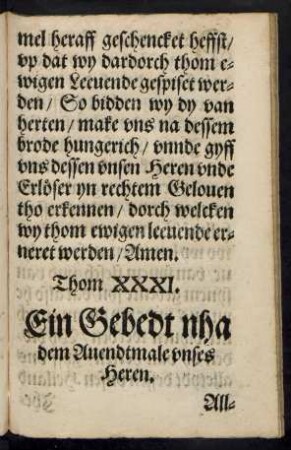 mel heraff geschencket heffst/
vp dat wy dardorch thom e-
wigen Leeuende gespiset wer-
den/ So bidden wy dy van
herten/ make vns na dessem
brode hungerich/ vnnde gyff
vns dessen vnsen Heren vnde
Erlöser yn rechtem Gelouen
tho erkennen/ dorch welcken
wy thom ewigen leeuende er-
neret werden/ Amen.
Thom XXXI.
Ein Gebedt nha
dem Auendtmale vnses
Heren.
All-